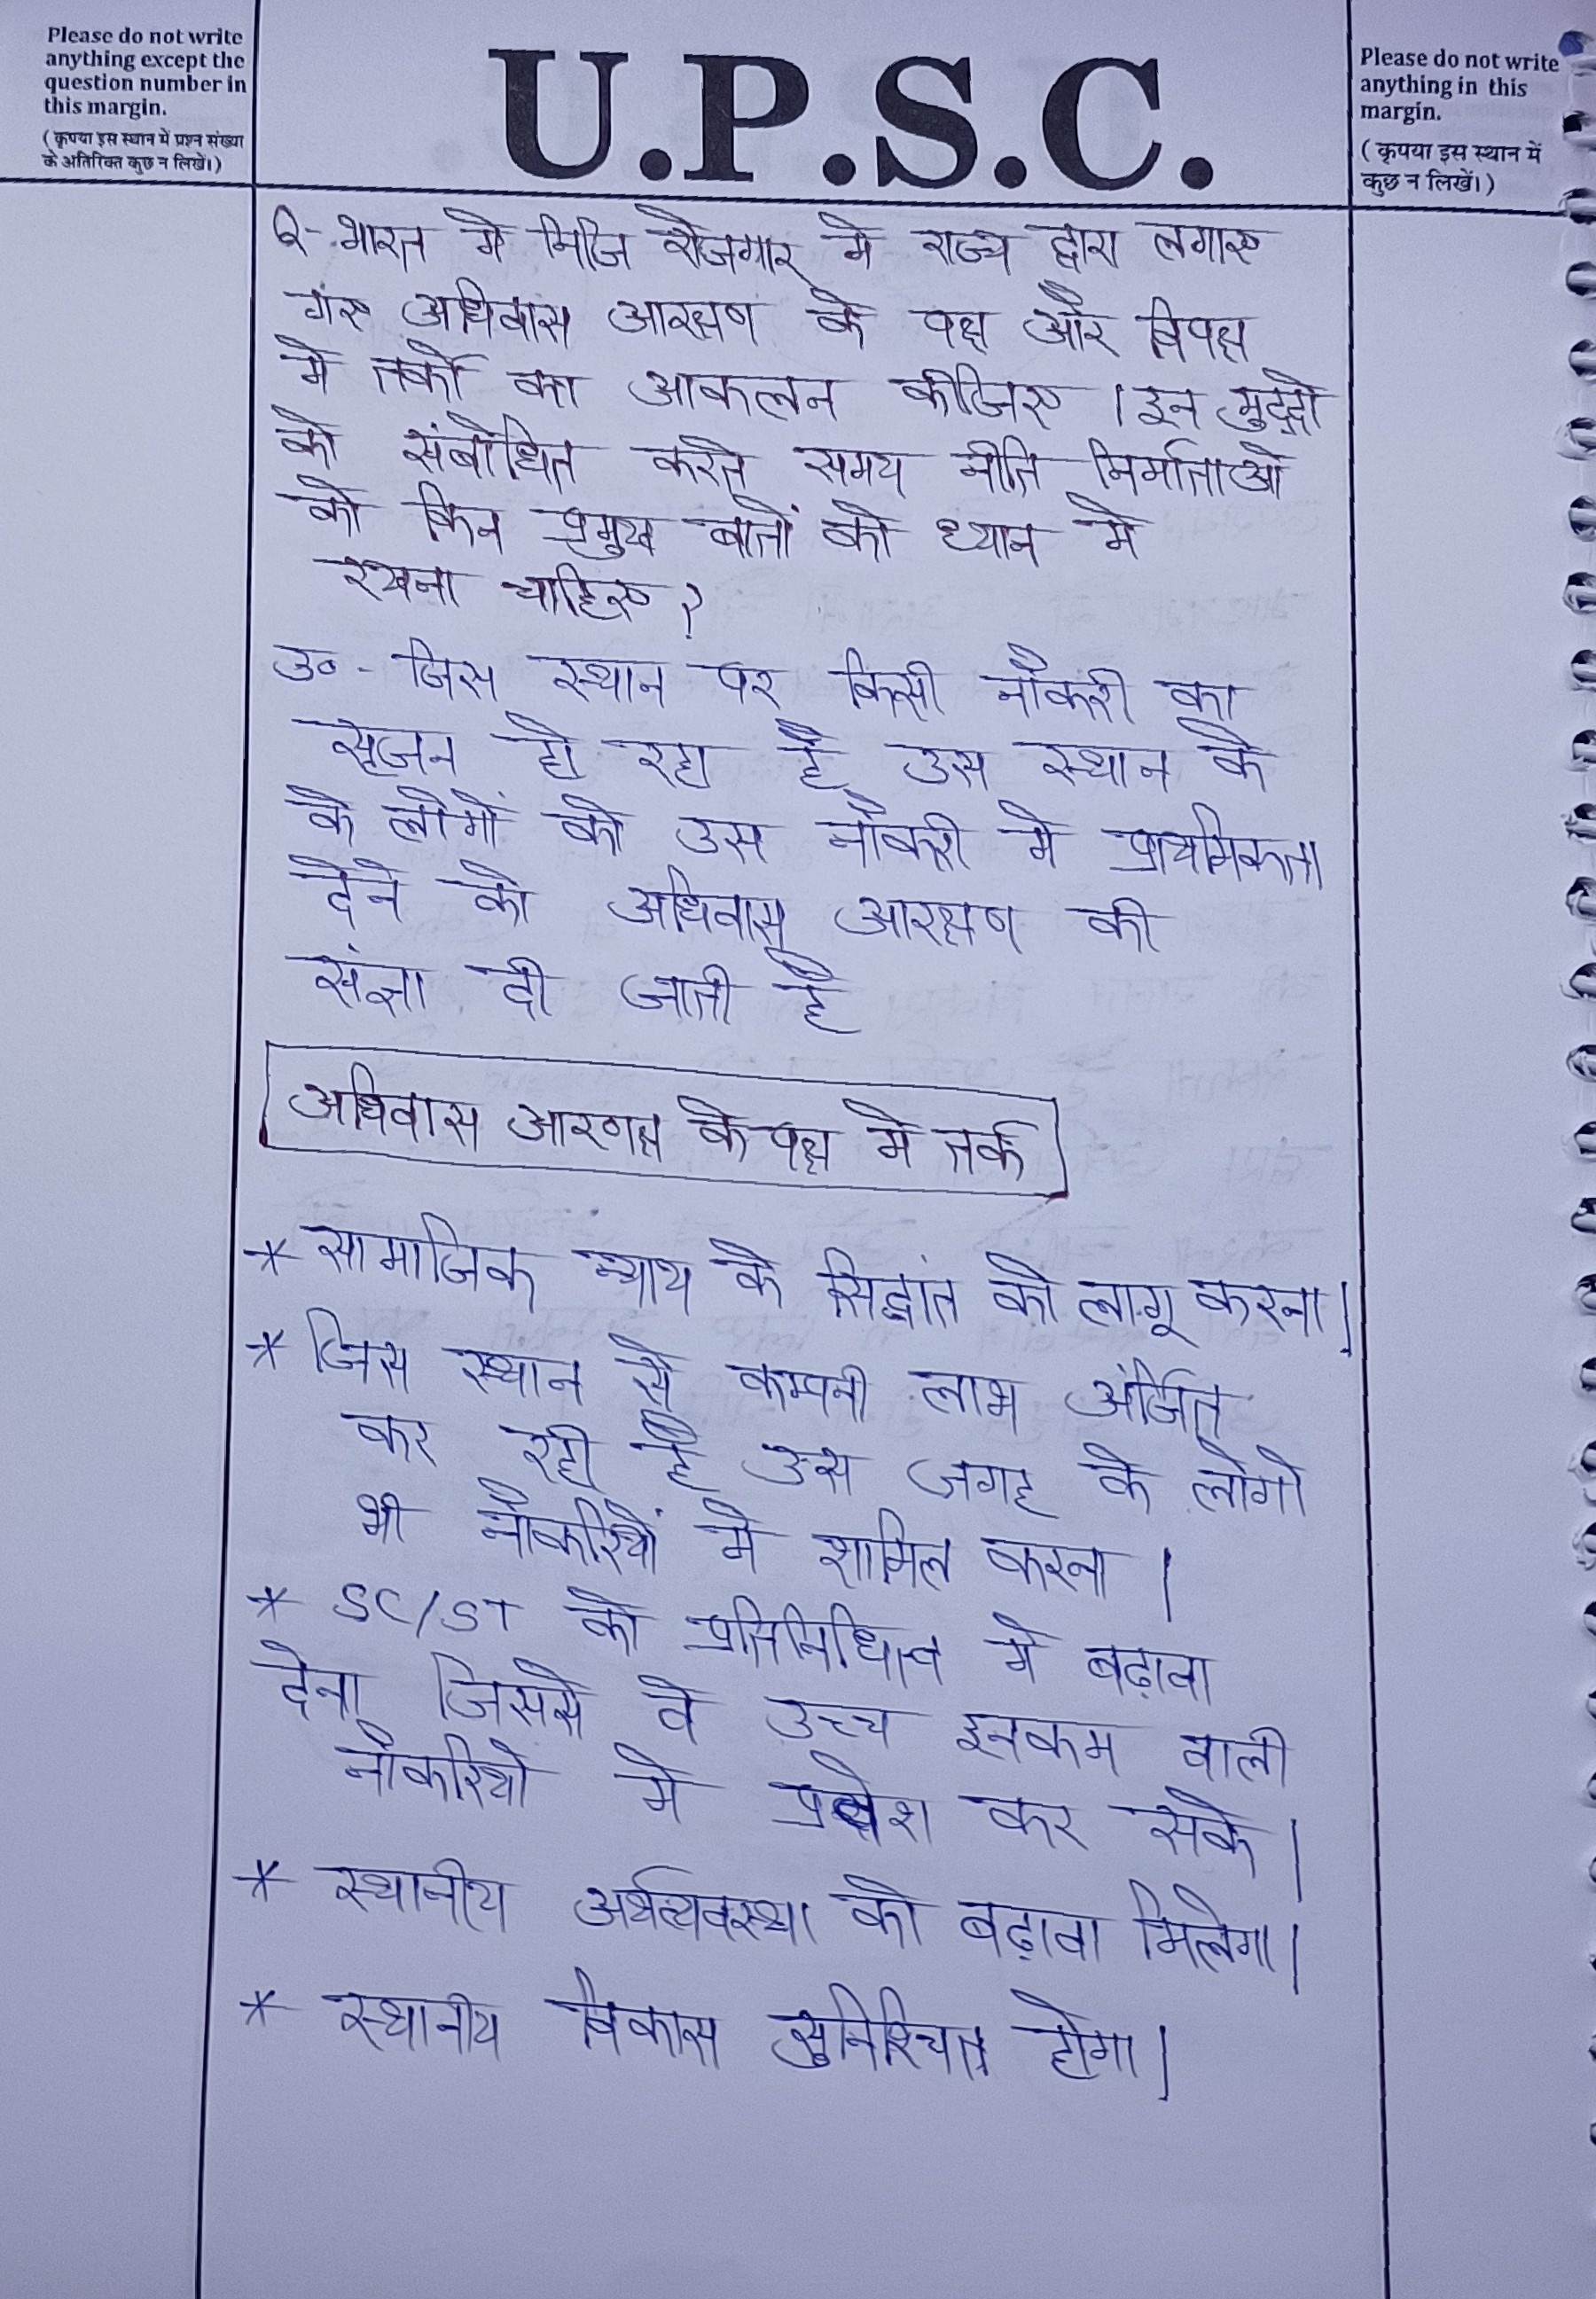 Please do not write
anything except the
question number in
this margin.
( कृपया इस स्थान में प्रश्न संख्या
के अतिरिक्त कुछ न लिखें।)
U.P.S.C.
Please do not write
anything in this
margin.
( कृपया इस स्थान में
कुछ न लिखें।)
Q- भारत मे निजि रोजगार मे राज्य द्वारा लगाए
गए अधिवास आरक्षण के पक्ष और विपक्ष
मे तर्को का आकलन कीजिए । इन मुद्दो
को संबोधित करते समय नीति निर्माताओ
को किन प्रमुख बातों को ध्यान मे
रखना चाहिए ?
उ० - जिस स्थान पर किसी नौकरी का
सृजन हो रहा है उस स्थान के
के लोगों को उस नौकरी मे प्राथमिकता
देने को अधिवास आरक्षण की
संज्ञा दी जाती है
अधिवास आरणक्ष के पक्ष मे तर्क
* सामाजिक न्याय के सिद्धांत को लागू करना।
* जिस स्थान से कम्पनी लाभ अर्जित
कर रही है उस जगह के लोगो
भी नौकरियों मे शामिल करना ।
* SC/ST को प्रतिनिधित्व मे बढ़ावा
देना जिससे वे उच्च इनकम वाली
नौकरियो मे प्रवेश कर सके ।
* स्थानीय अर्थव्यवस्था को बढ़ावा मिलेगा।
* स्थानीय विकास सुनिश्चित होगा।